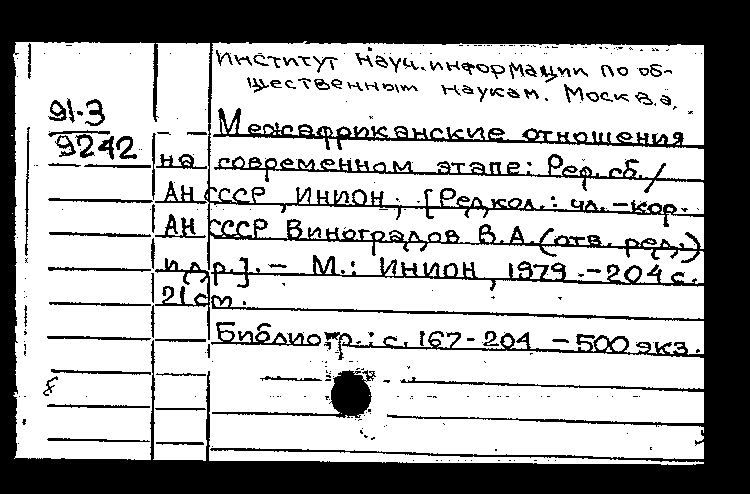 Институт науч. информации по об-
щественным наукам. Москва.
91-3
9242
Межафриканские отношения
на современном этапе: Реф. сб. /
АН СССР, ИНИОН; [Редкол.: чл.-кор.
АН СССР Виноградов В.А. (отв. ред.)
и др.]. – М.: ИНИОН, 1979. – 204 с.
21 см.
Библиогр.: с. 167-204 – 500 экз.